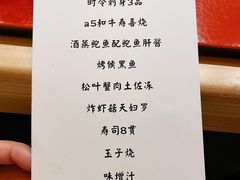 时令刺身3品
a5和牛寿喜烧
酒蒸鲍鱼配鲍鱼肝酱
烤候黑鱼
松叶蟹肉土佐冻
炸虾菇天妇罗
寿司8贯
玉子烧
味增汁